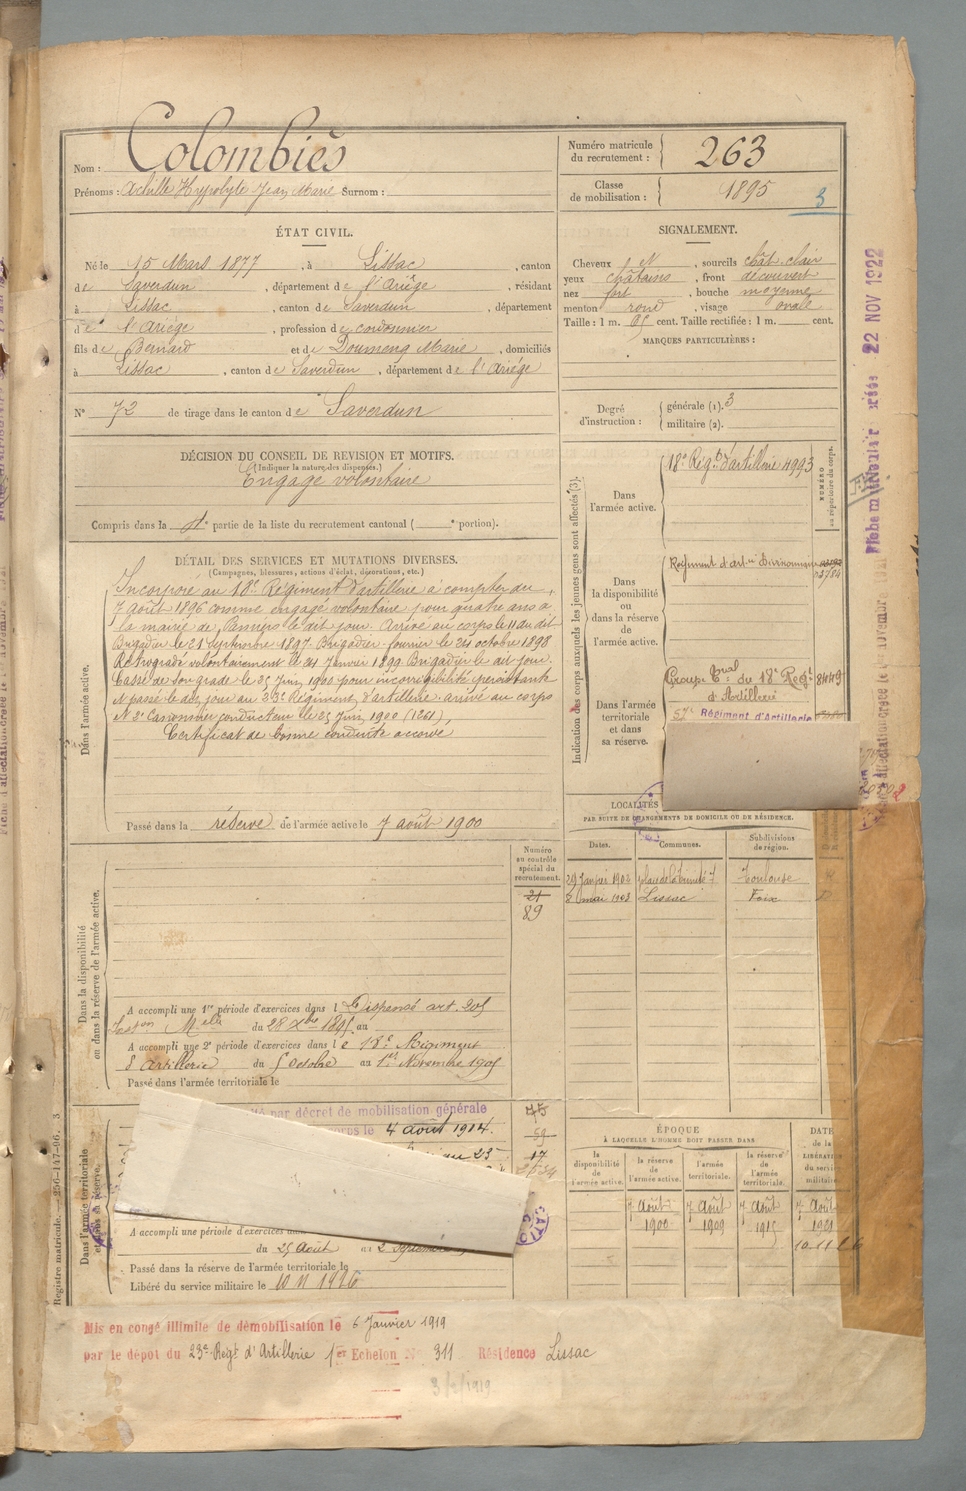 Nom : Colombiès
Prénoms : Achille Hypolyte Jean Marie Surnom :
Numéro matricule du recrutement : 263
Classe de mobilisation : 1895
3
ÉTAT CIVIL.
Né le 15 Mars 1877, à Lissac, canton
de Saverdun, département de l'Ariège, résidant
à Lissac, canton de Saverdun, département
de l'Ariège, profession de cordonnier
fils de Bernard et de Doumeng Marie, domiciliés
à Lissac, canton de Saverdun, département de l'Ariège
N° 72 de tirage dans le canton de Saverdun
SIGNALEMENT.
Cheveux et, sourcils chât clair
yeux châtains, front découvert
nez fort, bouche moyenne
menton rond, visage ovale
Taille : 1 m. cent. Taille rectifiée : 1 m. cent.
MARQUES PARTICULIÈRES :
Degré d'instruction : générale (1). 3
militaire (2).
DÉCISION DU CONSEIL DE REVISION ET MOTIFS.
(Indiquer la nature des dispenses.)
Engagé volontaire
Compris dans la partie de la liste du recrutement cantonal ( portion).
DÉTAIL DES SERVICES ET MUTATIONS DIVERSES.
(Campagnes, blessures, actions d'éclat, décorations, etc.)
Dans l'armée active.
Incorporé au 18e Régiment d'artillerie à compter du
7 Août 1896 comme engagé volontaire pour quatre ans à
la mairie de Pamiers le dit jour. Arrivé au corps le 11 du dit
Brigadier le 21 septembre 1897. Brigadier fourrier le 24 octobre 1898
Rétrogradé volontairement le 21 Janvier 1899 Brigadier le dit jour.
Cassé de son grade le 25 Juin 1900 pour incorrigibilité persistante
et passé le dit jour au 23e Régiment d'artillerie. arrivé au corps
et 2e Canonnier conducteur le 25 Juin 1900 (1261),
Certificat de bonne conduite accordé
Passé dans la réserve de l'armée active le 7 août 1900
Indication des corps auxquels les jeunes gens sont affectés (3).
NUMÉRO au répertoire du corps.
Dans l'armée active.
18e Régt d'artillerie 4993
Dans la disponibilité ou dans la réserve de l'armée active.
Régiment d'art
Dans l'armée territoriale et dans sa réserve.
Groupe du 18e Régt 8449
d'Artillerie
57e Régiment d'Artillerie
LOCALITÉS
PAR SUITE DE CHANGEMENTS DE DOMICILE OU DE RÉSIDENCE.
Dates. Communes. Subdivisions de région.
29 Janvier 1902 place de la Trinité 7 Toulouse
8 mai 1903 Lissac Foix
Dans la disponibilité ou dans la réserve de l'armée active.
Numéro au contrôle spécial du recrutement.
21
89
A accompli une 1re période d'exercices dans l Dispensé art. 205
du 28 Xbre 1895 au
A accompli une 2e période d'exercices dans le 18e Régiment
d'Artillerie du 5 octobre au 1er Novembre 1905
Passé dans l'armée territoriale le
Dans l'armée territoriale et dans sa réserve.
par décret de mobilisation générale
corps le 4 août 1914.
75
59
17
A accompli une période d'exercices
du 25 Août au 2
Passé dans la réserve de l'armée territoriale le
Libéré du service militaire le 10 11 1926
ÉPOQUE
À LAQUELLE L'HOMME DOIT PASSER DANS
la disponibilité de l'armée active.
la réserve de l'armée active.
l'armée territoriale.
la réserve de l'armée territoriale.
DATE de la LIBÉRATION du service militaire
7 Août 1900
7 Août 1909
7 Août 1915
7 Août
10.11.26
Mis en congé illimité de démobilisation le 6 Janvier 1919
par le dépôt du 23e Régt d'Artillerie 1er Echelon N° 311 Résidence Lissac
3/2/1919
Registre matricule. — 256-147-96. 3
22 NOV 1922